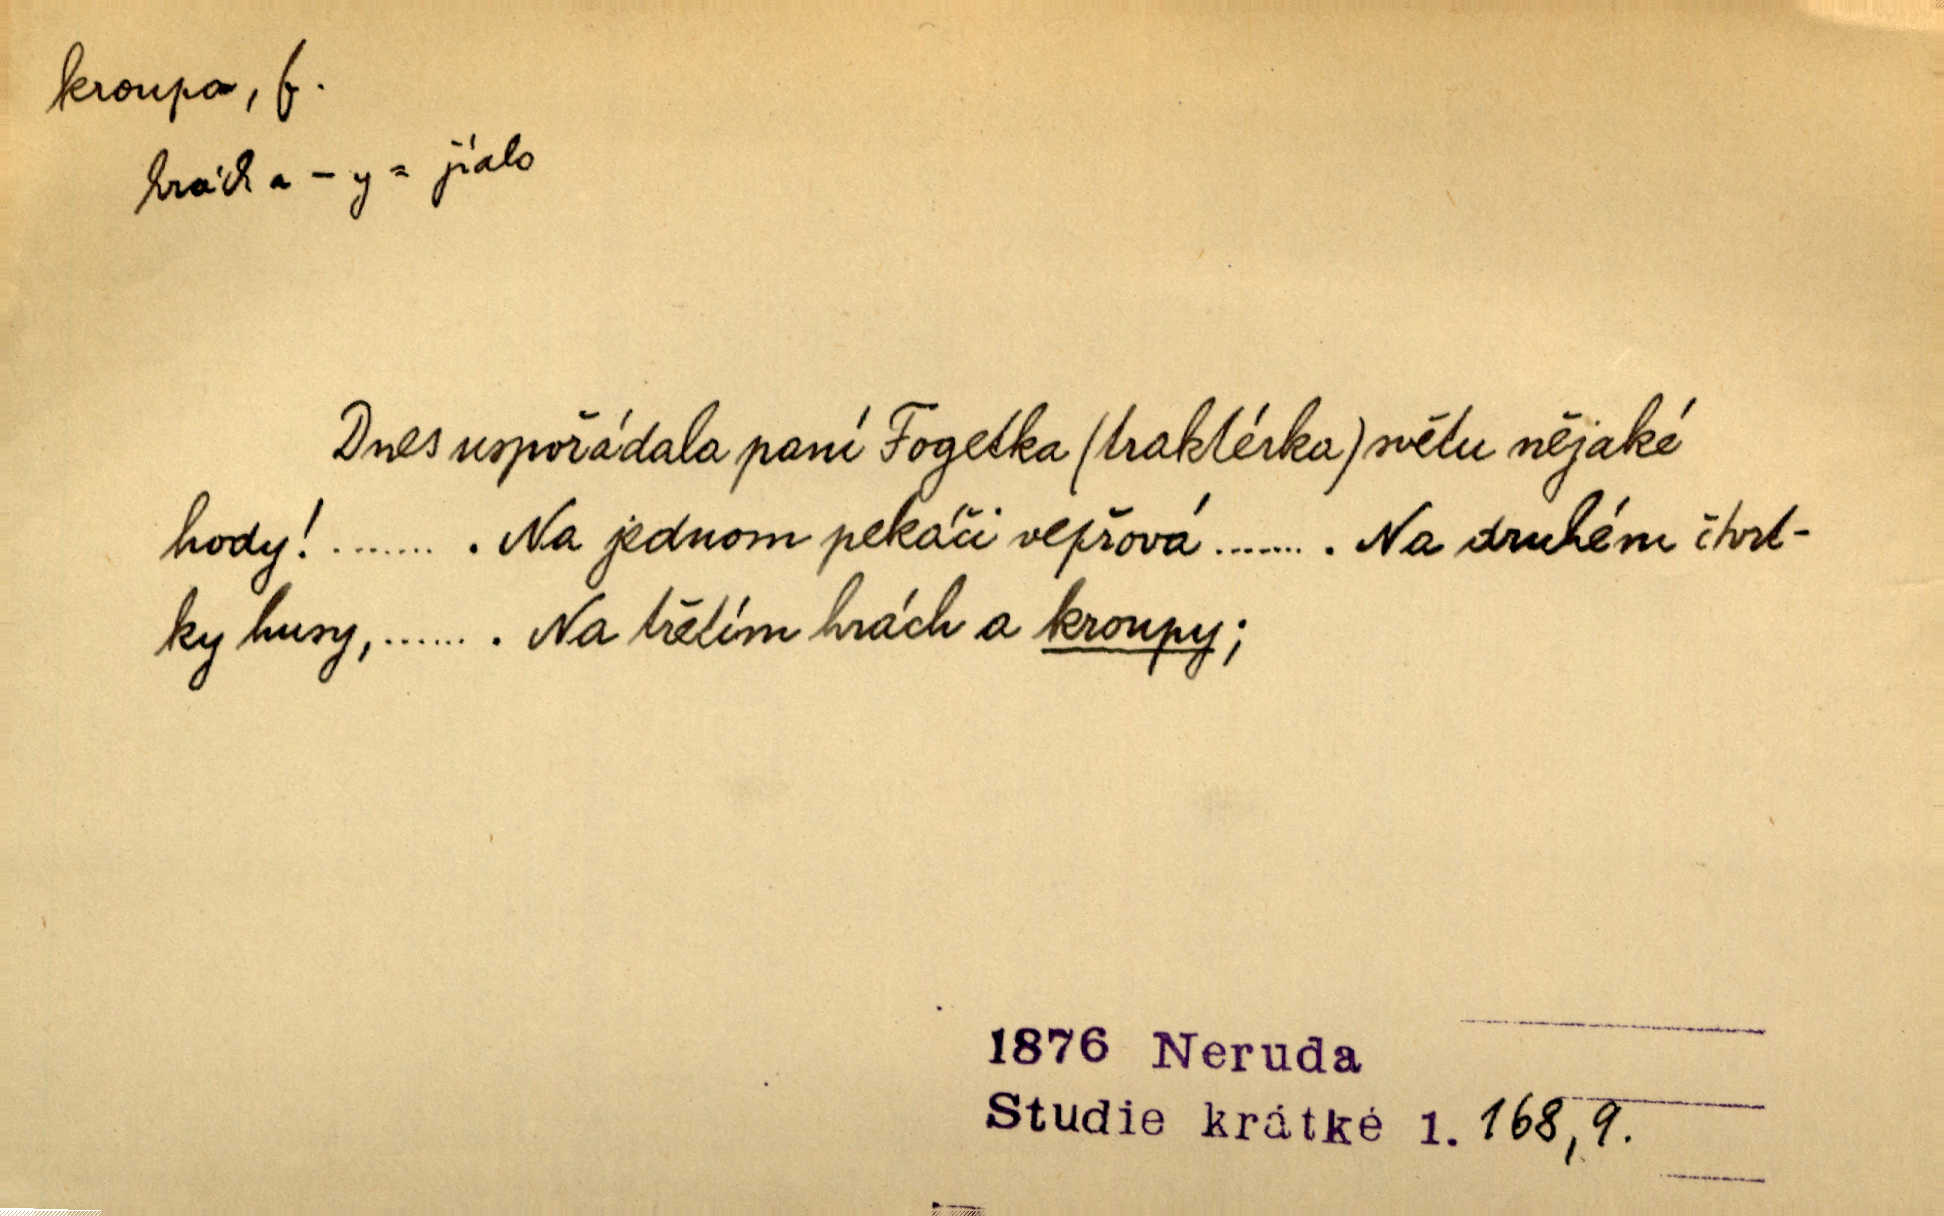 kroupa, f.
hrách a - y = jídlo
Dnes uspořádala paní Fogetka (traktérka) světu nějaké
hody! ....... . Na jednom pekáči vepřová ....... . Na druhém čtvrt-
ky husy, ...... . Na třetím hrách a kroupy;
1876 Neruda
Studie krátké 1. 168, 9.